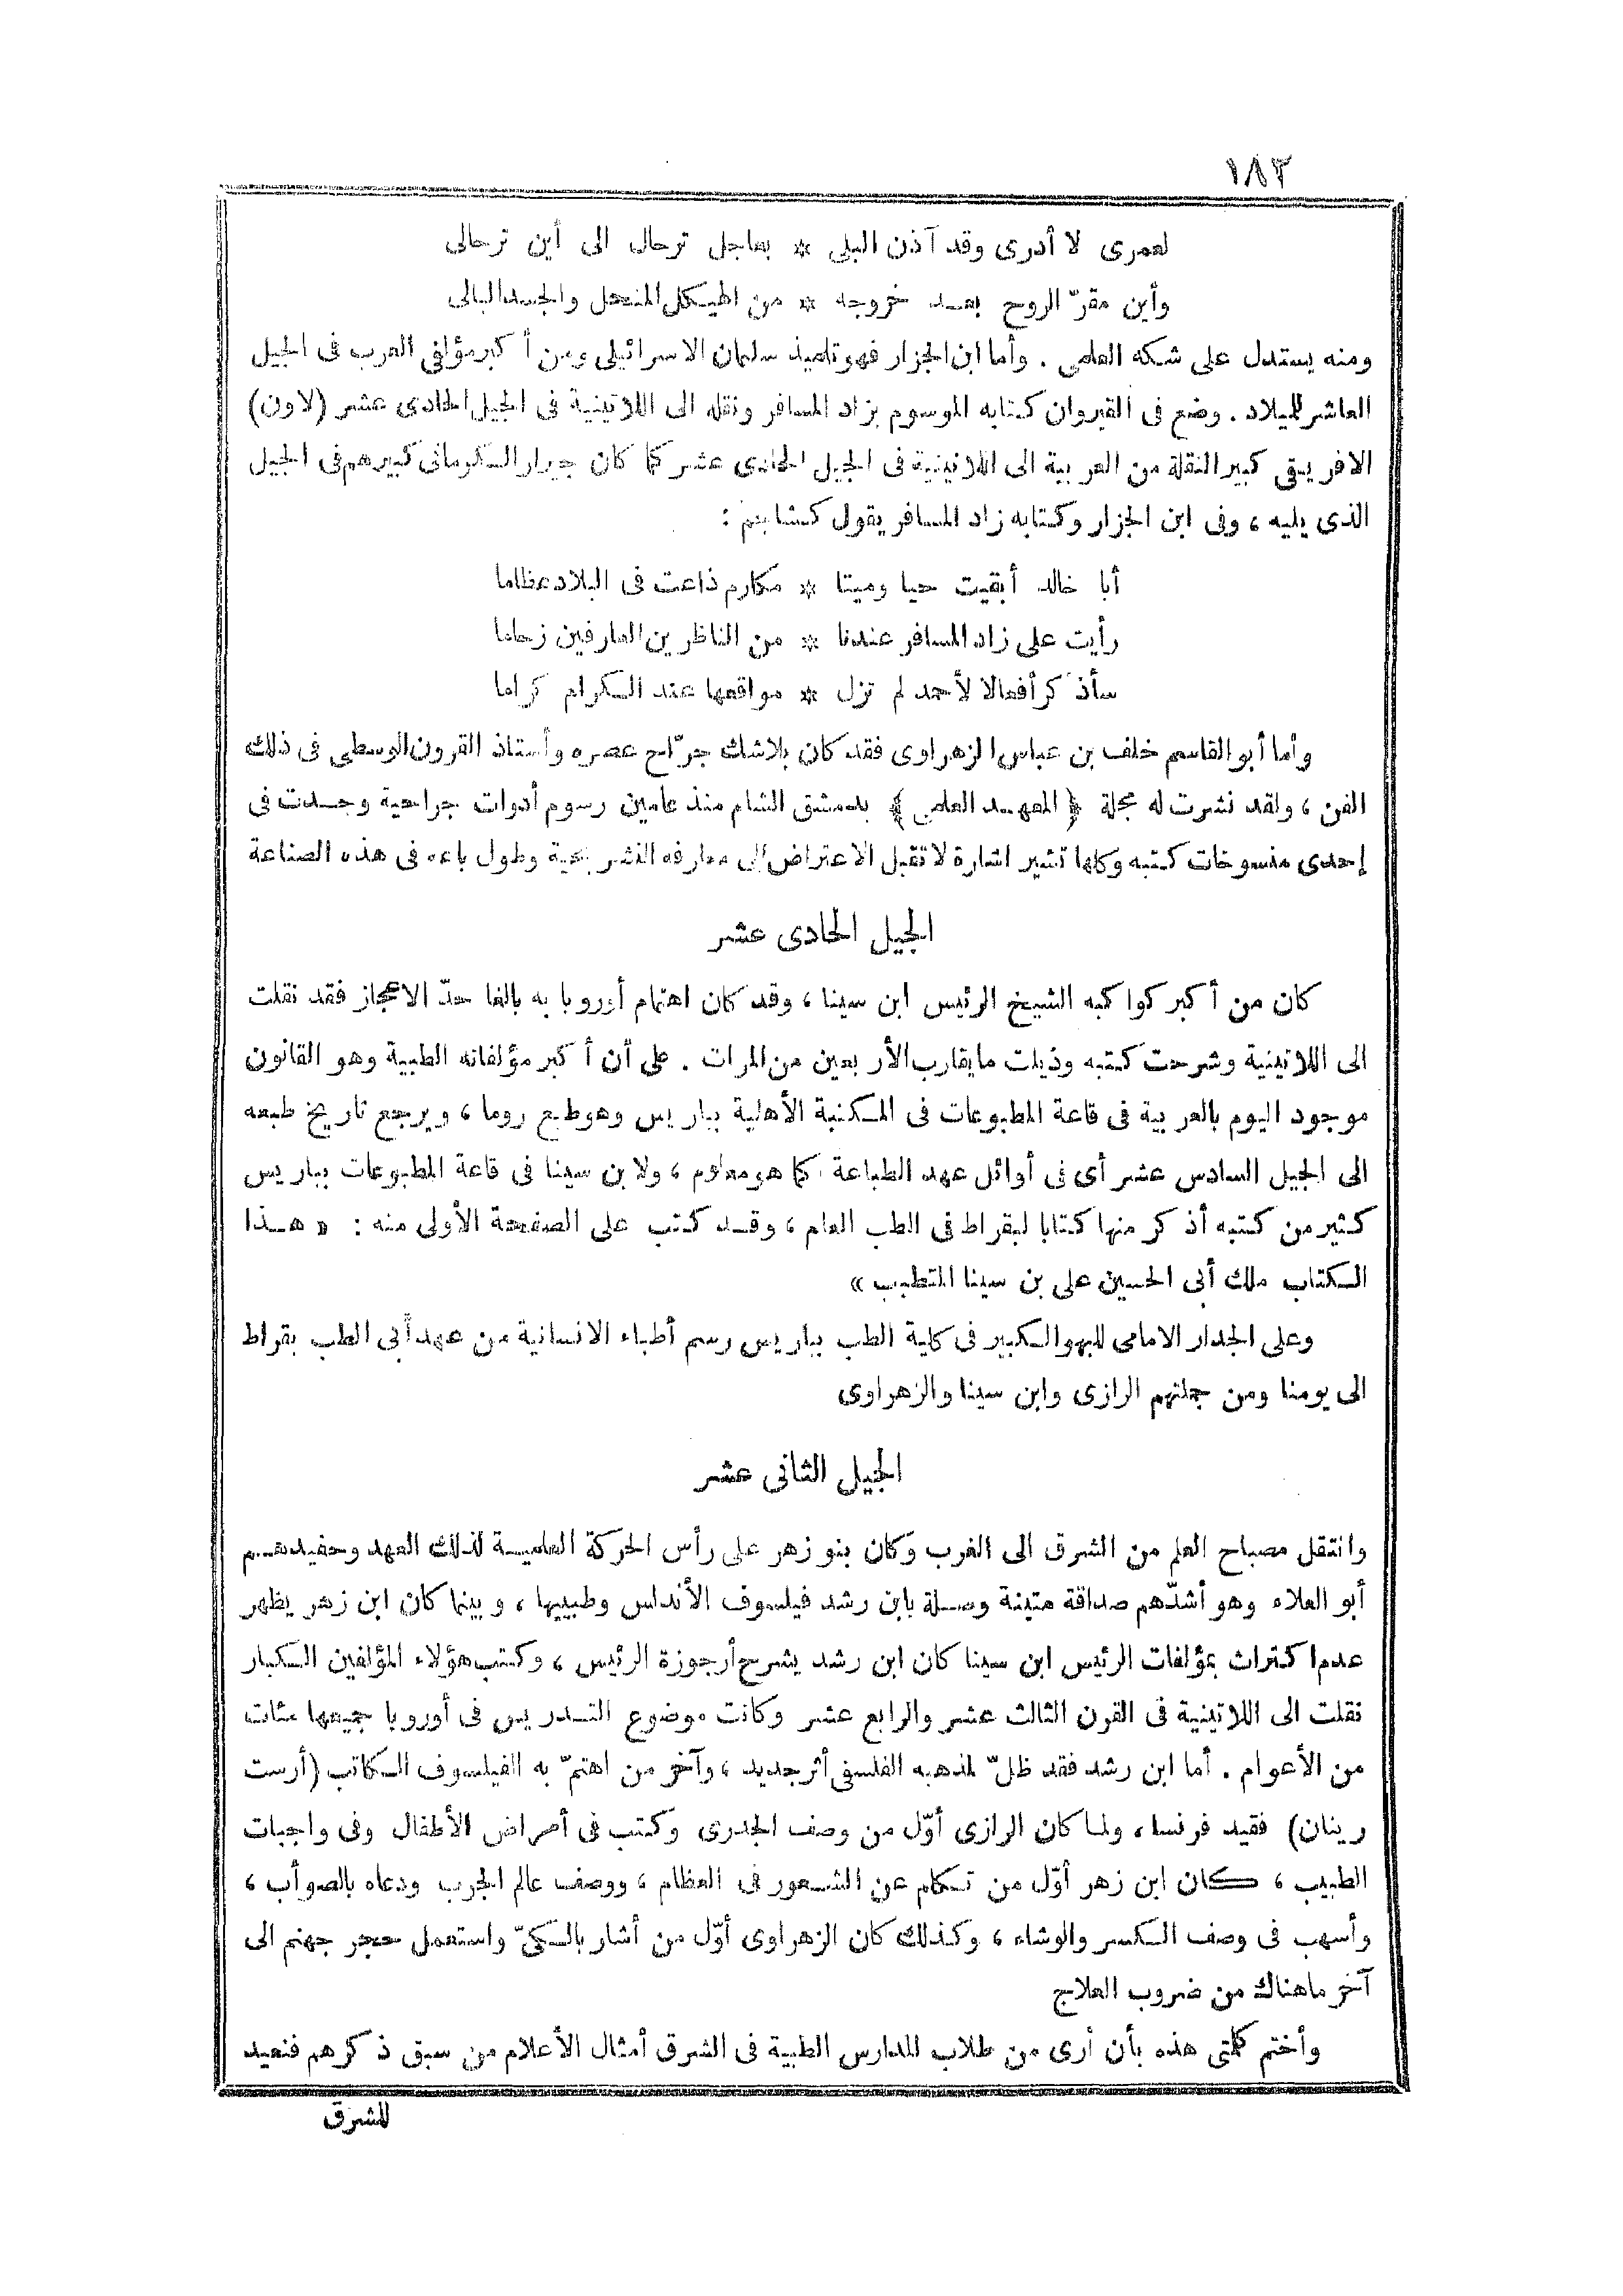 ١٨٣
لعمرى لا أدرى وقد آذن البلى * بعاجل ترحال الى أين ترحالى
وأين مقرّ الروح بعد خروجه * من الهيكل المنحل والجسد البالى
ومنه يستدل على شكه العلمى . وأما ابن الجزار فهو تلميذ سليمان الاسرائيلى ومن أكبر مؤلفى العرب فى الجيل
العاشر للميلاد . وضع فى القيروان كتابه الموسوم بزاد المسافر ونقله الى اللاتينية فى الجيل الحادى عشر (لاون)
الافريقى كبير النقلة من العربية الى اللاتينية فى الجيل الحادى عشر كما كان جيرار الكرومانى كبيرهم فى الجيل
الذى يليه ، وفى ابن الجزار وكتابه زاد المسافر يقول كشاجم :
أبا خالد أبقيت حيا وميتا * مكارم ذاعت فى البلاد عظاما
رأيت على زاد المسافر عندنا * من الناظرين العارفين زحاما
سأذكر أفعالا لأحمد لم تزل * مواقعها عند الكرام كراما
وأما أبو القاسم خلف بن عباس الزهراوى فقد كان بلاشك جرّاح عصره وأستاذ القرون الوسطى فى ذلك
الفن ، ولقد نشرت له مجلة ﴿ المعهد العلمى ﴾ بدمشق الشام منذ عامين رسوم أدوات جراحية وجدت فى
إحدى منسوخات كتبه وكلها تشير اشارة لا تقبل الاعتراض الى معارفه التشريحية وطول باعه فى هذه الصناعة
الجيل الحادى عشر
كان من أكبر كواكبه الشيخ الرئيس ابن سينا ، وقد كان اهتمام أوروبا به بالغا حدّ الاعجاز فقد نقلت
الى اللاتينية وشرحت كتبه وذيلت مايقارب الأربعين من المرات . على أن أكبر مؤلفاته الطبية وهو القانون
موجود اليوم بالعربية فى قاعة المطبوعات فى المكتبة الأهلية بباريس وهو طبع روما ، ويرجع تاريخ طبعه
الى الجيل السادس عشر أى فى أوائل عهد الطباعة كما هو معلوم ، ولابن سينا فى قاعة المطبوعات بباريس
كثير من كتبه أذكر منها كتابا لبقراط فى الطب العام ، وقد كتب على الصفحة الأولى منه : « هذا
الكتاب ملك أبى الحسين على بن سينا المتطبب »
وعلى الجدار الامامى للبهو الكبير فى كلية الطب بباريس رسم أطباء الانسانية من عهد أبى الطب بقراط
الى يومنا ومن جملتهم الرازى وابن سينا والزهراوى
الجيل الثانى عشر
وانتقل مصباح العلم من الشرق الى الغرب وكان بنو زهر على رأس الحركة العلمية لذلك العهد وحفيدهم
أبو العلاء وهو أشدّهم صداقة متينة وصلة بابن رشد فيلسوف الأندلس وطبيبها ، وبينما كان ابن زهر يظهر
عدم اكتراث بمؤلفات الرئيس ابن سينا كان ابن رشد يشرح أرجوزة الرئيس ، وكتب هؤلاء المؤلفين الكبار
نقلت الى اللاتينية فى القرن الثالث عشر والرابع عشر وكانت موضوع التدريس فى أوروبا جميعها مئات
من الأعوام . أما ابن رشد فقد ظلّ لمذهبه الفلسفى أثر جديد ، وآخر من اهتمّ به الفيلسوف الكاتب (أرست
رينان) فقيد فرنسا ، ولما كان الرازى أوّل من وصف الجدرى وكتب فى أمراض الأطفال وفى واجبات
الطبيب ، كان ابن زهر أوّل من تكلم عن الشعور فى العظام ، ووصف عالم الجرب ودعاه بالصوأب ،
وأسهب فى وصف الكسر والوشاء ، وكذلك كان الزهراوى أوّل من أشار بالكىّ واستعمل حجر جهنم الى
آخر ماهناك من ضروب العلاج
وأختم كلمتى هذه بأن أرى من طلاب المدارس الطبية فى الشرق أمثال الأعلام من سبق ذكرهم فنعيد
للشرق